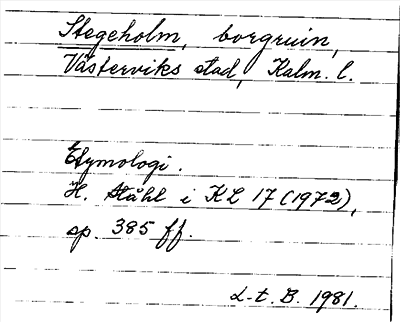 Stegeholm, borgruin,
Västerviks stad, Kalm. l.
Etymologi.
H. Ståhl i KL 17 (1972),
sp. 385 ff.
L-t. B. 1981.